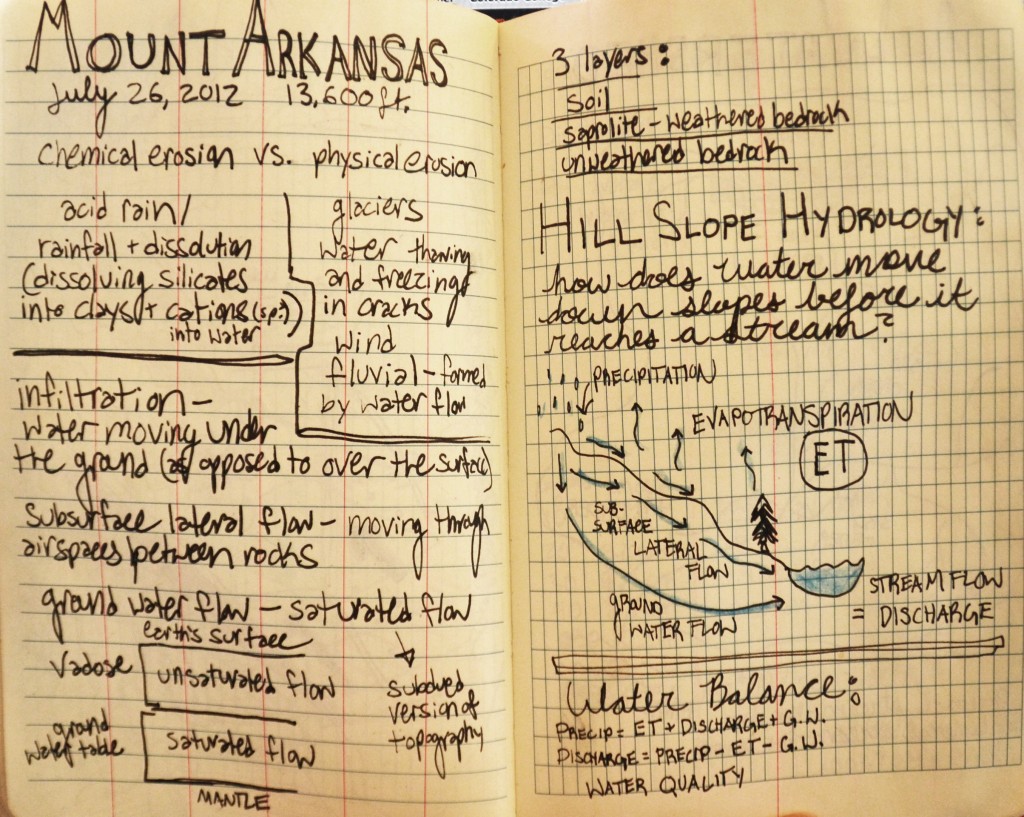 MOUNT ARKANSAS
July 26, 2012 13,600 ft.
chemical erosion vs. physical erosion
acid rain/
rainfall + dissolution
(dissolving silicates
into clays + cations (sp?))
into water
glaciers
water thawing
and freezing
in cracks
wind
fluvial - formed
by water flow
infiltration -
water moving under
the ground (as opposed to over the surface)
subsurface lateral flow - moving through
airspaces between rocks
ground water flow - saturated flow
subdued
version of
topography
earth's surface
Vadose
unsaturated flow
ground
water table
saturated flow
MANTLE
3 layers:
soil
saprolite - weathered bedrock
unweathered bedrock
HILL SLOPE HYDROLOGY:
how does water move
down slopes before it
reaches a stream?
PRECIPITATION
EVAPOTRANSPIRATION
ET
SUB-
SURFACE
LATERAL
FLOW
GROUND
WATER FLOW
STREAM FLOW
= DISCHARGE
Water Balance:
PRECIP = ET + DISCHARGE + G.W.
DISCHARGE = PRECIP - ET - G.W.
WATER QUALITY